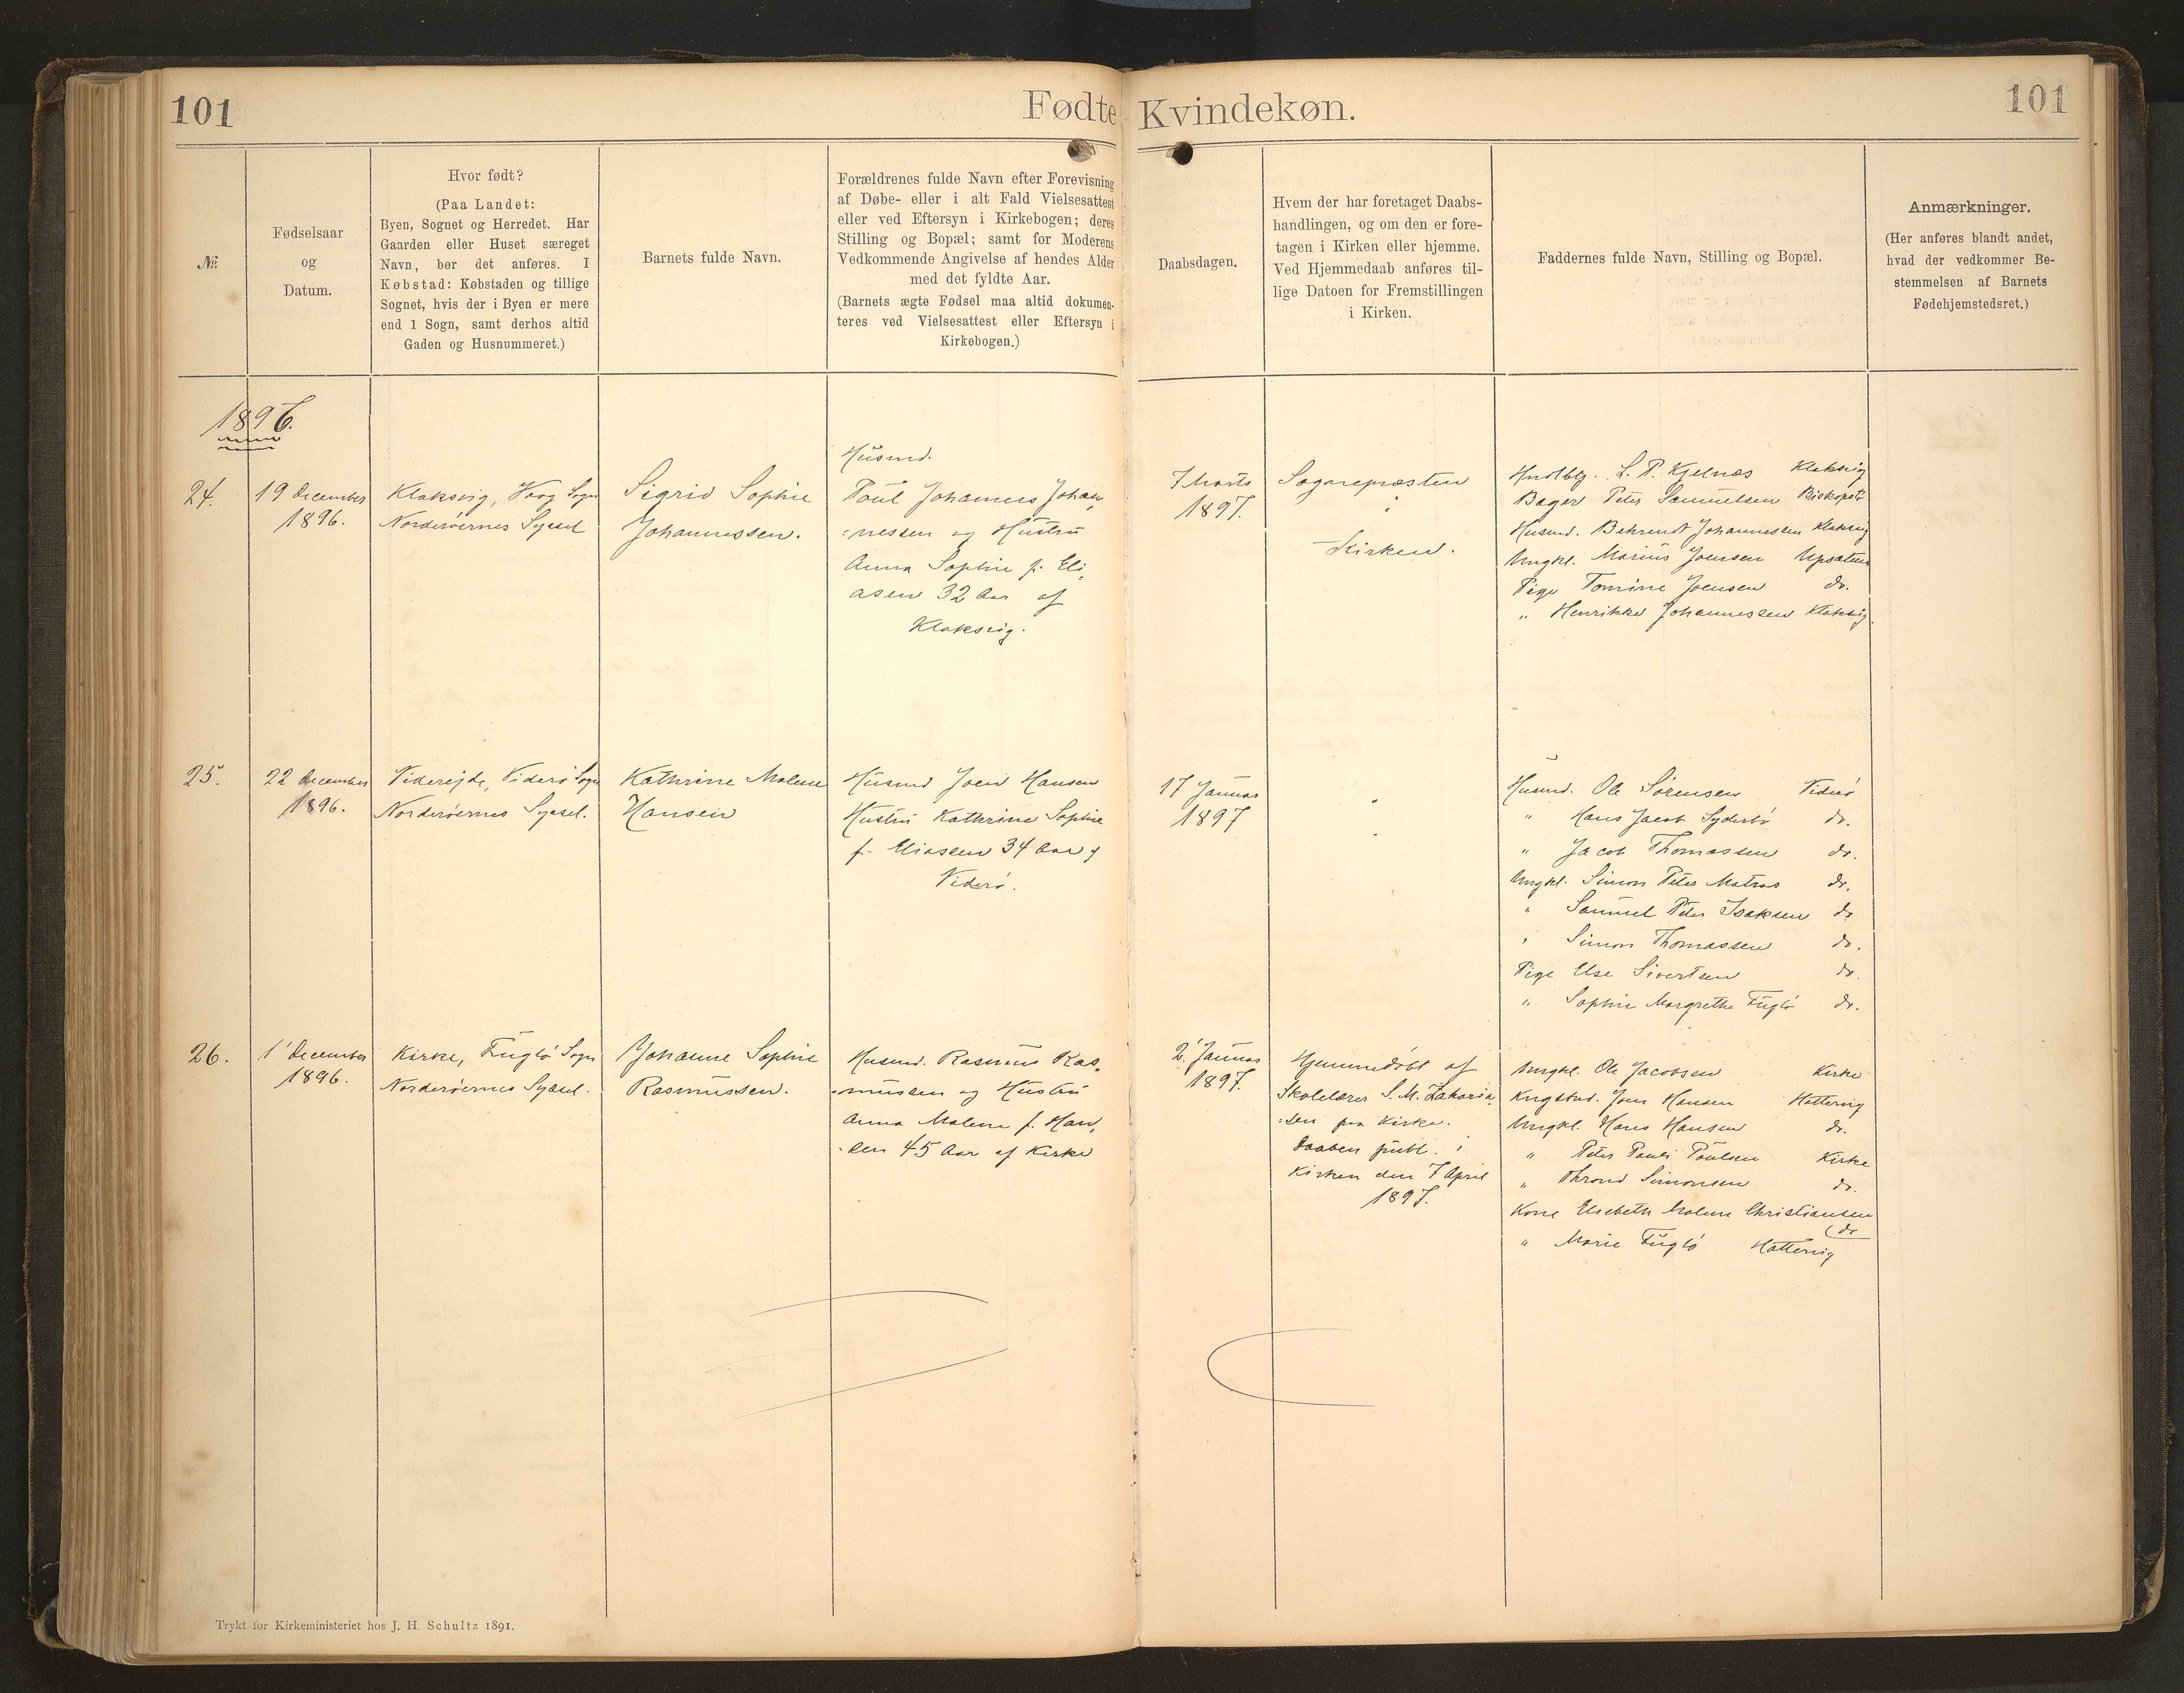 101
Fødte Kvindekøn.
101
№.
Fødselsaar
og
Datum.
Hvor født?
(Paa Landet:
Byen, Sognet og Herredet. Har
Gaarden eller Huset særeget
Navn, bør det anføres. I
Købstad: Købstaden og tillige
Sognet, hvis der i Byen er mere
end 1 Sogn, samt derhos altid
Gaden og Husnummeret.)
Barnets fulde Navn.
Forældrenes fulde Navn efter Forevisning
af Døbe- eller i alt Fald Vielsesattest
eller ved Eftersyn i Kirkebogen; deres
Stilling og Bopæl; samt for Moderens
Vedkommende Angivelse af hendes Alder
med det fyldte Aar.
(Barnets ægte Fødsel maa altid dokumen-
teres ved Vielsesattest eller Eftersyn i
Kirkebogen.)
Daabsdagen.
Hvem der har foretaget Daabs-
handlingen, og om den er fore-
tagen i Kirken eller hjemme.
Ved Hjemmedaab anføres til-
lige Datoen for Fremstillingen
i Kirken.
Faddernes fulde Navn, Stilling og Bopæl.
Anmærkninger.
(Her anføres blandt andet,
hvad der vedkommer Be-
stemmelsen af Barnets
Fødehjemstedsret.)
1896.
24.
19 december
1896.
Klaksvig, Vaag Sogn
Norderøernes Syssel
Sigrid Sophie
Johannessen.
Husmd.
Poul Johannes Johan,
:nessen og Hustru
Anna Sophie f. Eli,
asen 32 Aar af
Klaksvig.
7 Marts
1897.
Sognepræsten
i
Kirken.
Hndlbg. S. P. Kjelnæs Klaksvig
Bager Peter Samuelsen Biskopst
Husmd. Behrendt Johannessen Klaksvig
Ungkl. Marius Joensen Upsalum
Pige Tomine Joensen do.
" Henrikke Johannessen Klaksvig.
25.
22 december
1896.
Viderejde, Viderø Sogn
Norderøernes Syssel.
Kathrine Malene
Hansen
Husmd Joen Hansen
Hustru Kathrine Sophie
f. Eliasen 34 Aar af
Viderø.
17 Januar
1897
"
"
Husmd. Ole Sørensen Viderø
" Hans Jacob Syderbø do.
" Jacob Thomassen do.
Ungkl. Simon Peter Matras do.
" Samuel Peter Isaksen do
" Simon Thomassen do.
Pige Else Sivertsen do.
" Sophie Margrethe Fuglø do.
26.
1 december
1896.
Kirke, Fuglø Sogn
Norderøernes Syssel.
Johanne Sophie
Rasmussen.
Husmd. Rasmus Ras,
:mussen og Hustru
Anna Malene f. Han,
:sen 45 Aar af Kirke
2. Januar
1897.
Hjemmedøbt af
Skolelærer S. M. Zakaria,
:sen paa Kirke.
Daaben publ. i
Kirken den 7 April
1897.
Ungkl. Ole Jacobsen Kirke
Kngsbnd. Joen Hansen Hattervig
Ungkl. Hans Hansen do.
" Peter Pauli Poulsen Kirke
" Thrond Simonsen do.
Kone Elsebeth Malene Christiansen
(do
" Marie Fuglø Hattervig
Trykt for Kirkeministeriet hos J. H. Schultz 1891.